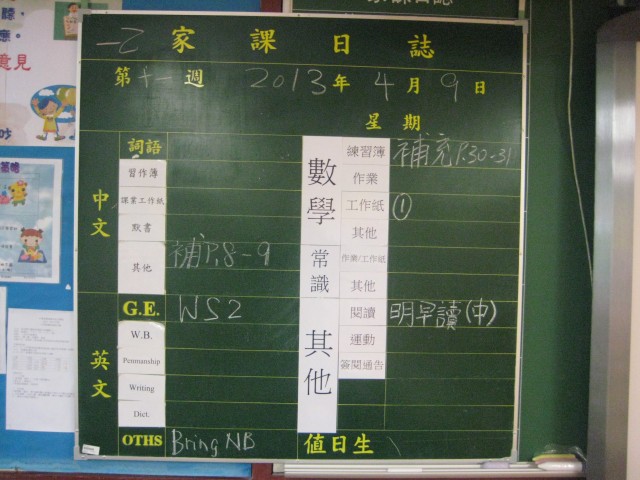 一乙 家課日誌
第十一週 2013年4月9日
星期
中文
詞語
習作簿
課業工作紙
默書
其他 補P.8-9
英文
G.E. WS2
W.B.
Penmanship
Writing
Dict.
OTHS Bring NB
數學
練習簿 補充P.30-31
作業
工作紙 ①
其他
常識
作業/工作紙
其他
其他
閱讀 明早讀(中)
運動
簽閱通告
值日生
意見